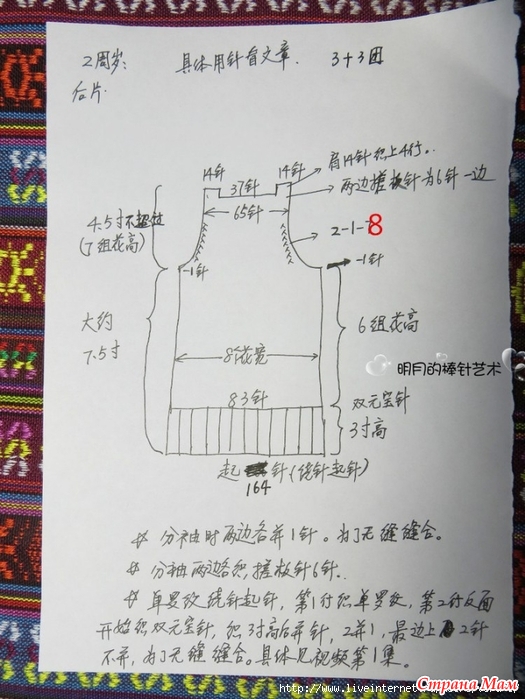 2周岁: 具体用针看文章. 3+3团
后片.
14针 14针 肩14针织上4行..
37针 两边搓板针为6针一边
65针
4.5寸
(7组花高)
2-1-8
-1针 -1针
大约
7.5寸
6组花高
8组花宽
明月的棒针艺术
83针
双元宝针
3寸高
起 针(绕针起针)
164
分袖时两边各并1针。为了无缝缝合。
分袖两边各织搓板针6针.
单罗纹绕针起针,第1行织单罗纹,第2行反面
开始织双元宝针,织3寸高后并针,2并1,最边上2针
不并,为了无缝缝合。具体见视频第1集。
Страна Мам
http://www.liveinternet.ru